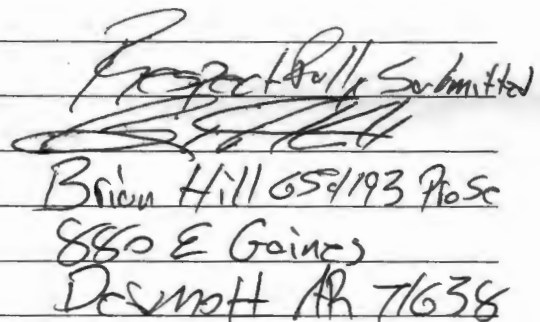 Respectfully Submitted
Brian Hill 650193 Pro Se
880 E Gaines
Dermott AR 71638